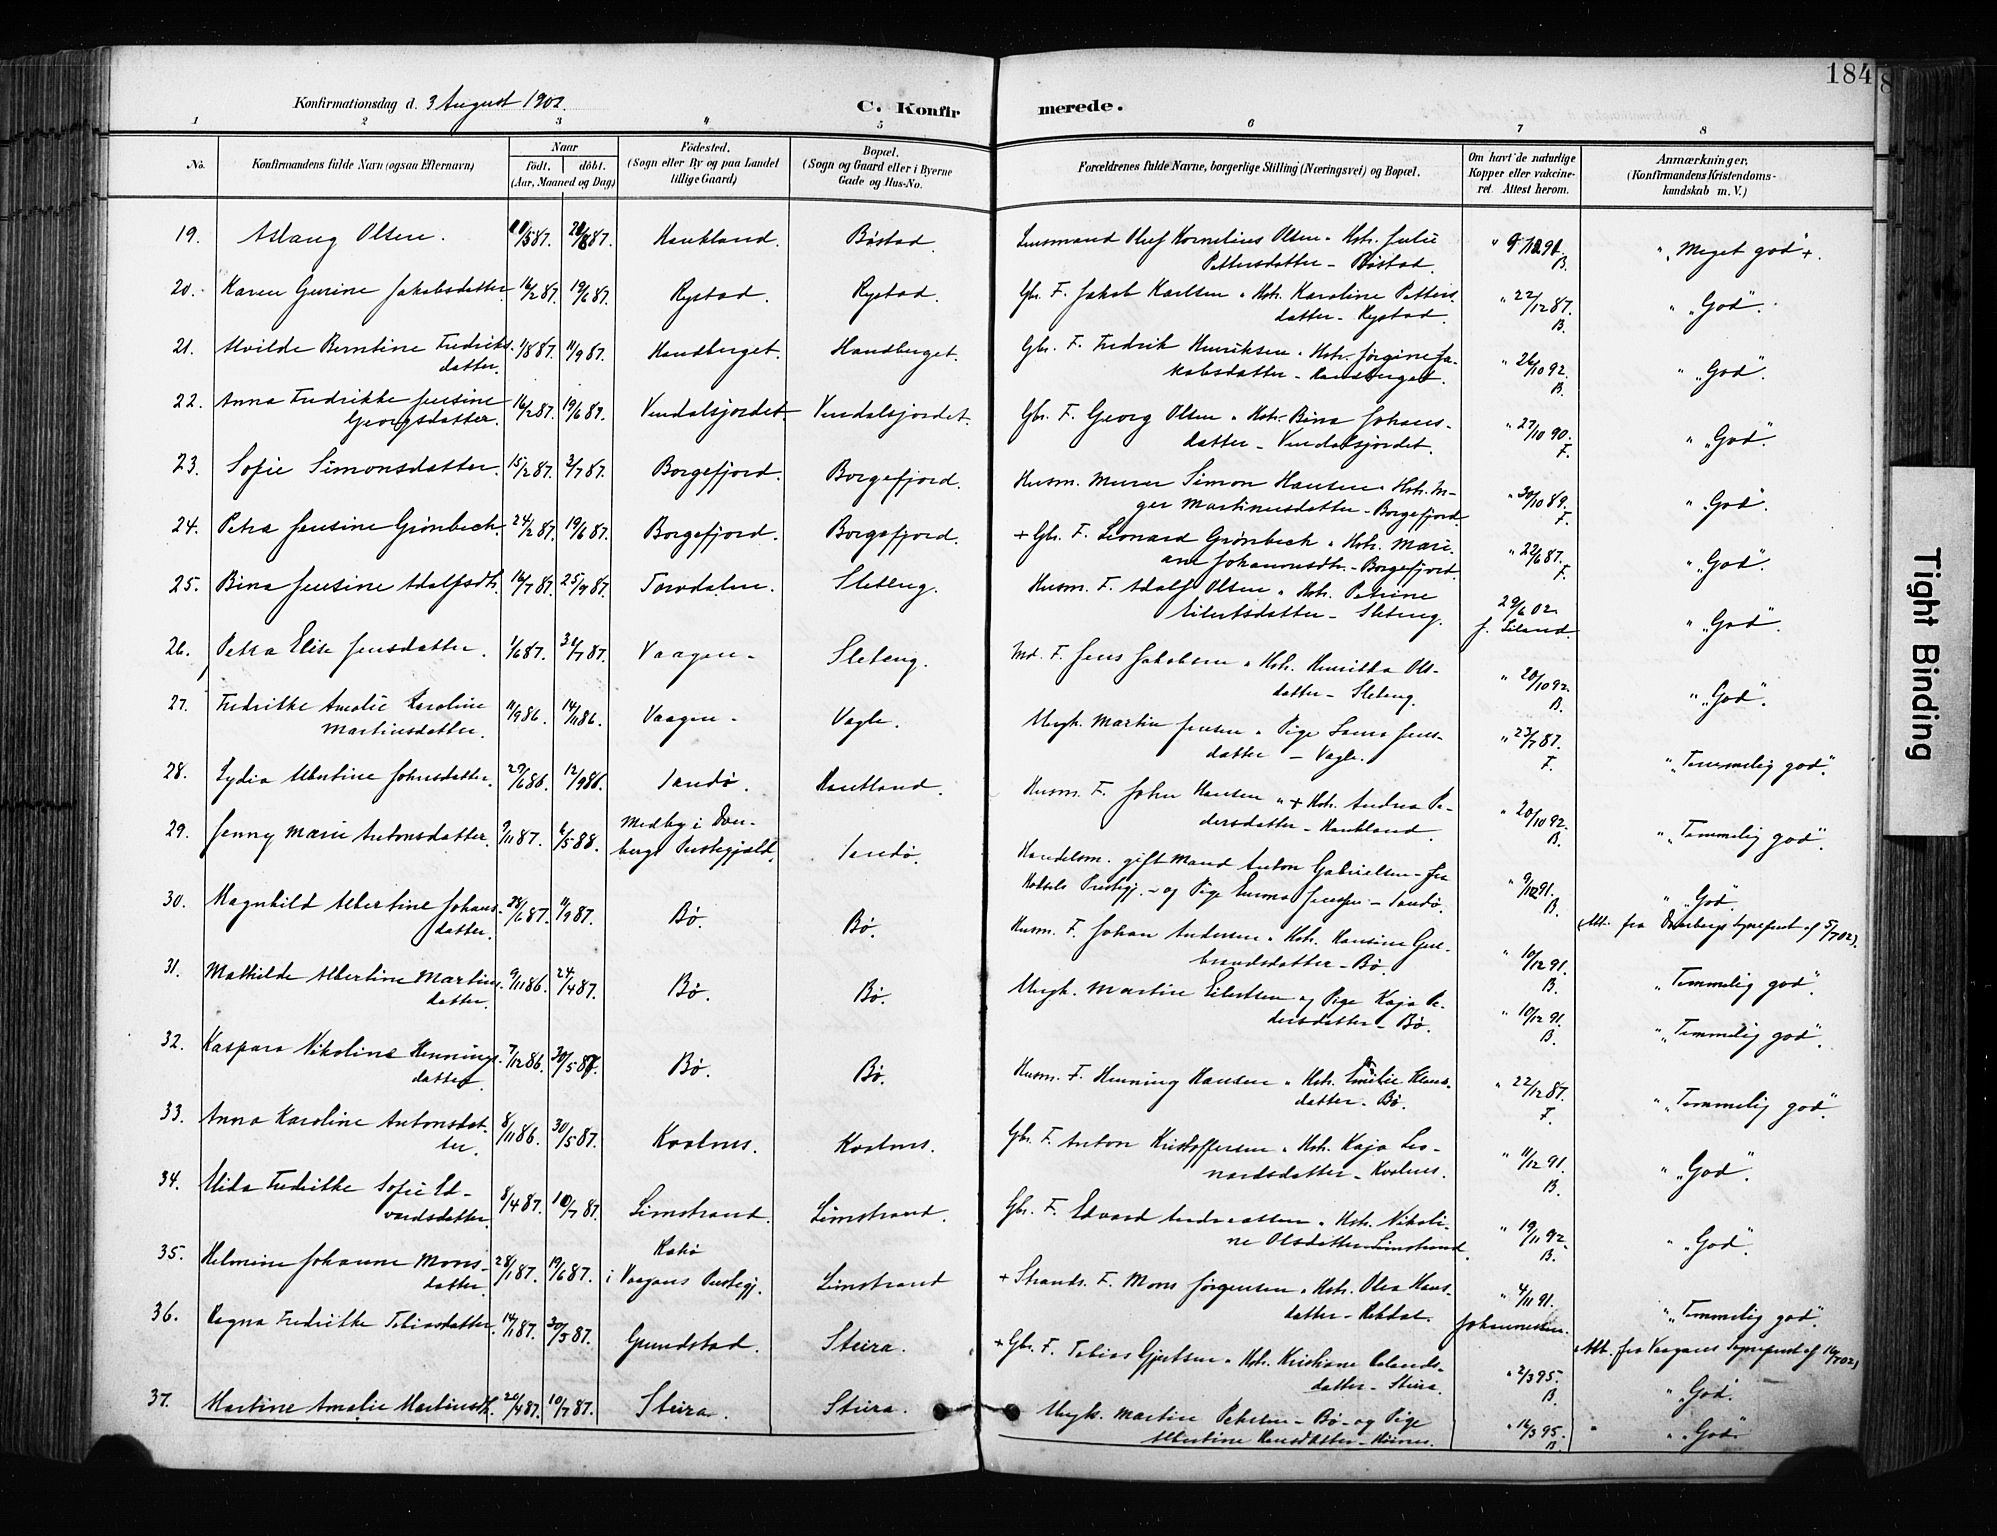 184
Konfirmationsdag d. 3 August 1902.
C. Konfirmerede.
1 2 3 4 5 6 7 8
No.
Konfirmandens fulde Navn (ogsaa Efternavn)
Naar
født. døbt.
(Aar, Maaned og Dag)
Fødested.
(Sogn eller By og paa Landet
tillige Gaard)
Bopæl.
(Sogn og Gaard eller i Byerne
Gade og Hus-No.
Forældrenes fulde Navne, borgerlige Stilling (Næringsvei) og Bopæl.
Om havt de naturlige
Kopper eller vakcine-
ret. Attest herom.
Anmærkninger,
(Konfirmandens Kristendoms-
kundskab m. V.)
19. Aslaug Olsen. Haukland. Bøstad. Lensmand Oluf Kornelius Olsen " Hstr. Julie
Pettersdatter – Bøstad. B. " "Meget god"+.
20. Karen Gurine Jakobsdatter 16/2 87. 19/6 87. Rystad. Rystad. Gbr. F. Jakob Karlsen " Hstr. Karoline Petters
datter – Rystad. " 22/12 87. B. " "God".
21. Alvilde Berntine Fredriks- 1/8 87. 11/9 87. Handberget. Handberget. Gbr. F. Fredrik Henriksen " Hstr. Jørgine Ja-
datter. kobsdatter – Handberget. " 26/10 92. B. " "God".
22. Anna Fredrikke Jensine 16/2 87. 19/6 87. Vendalsjordet Vendalsjordet. Gbr. F. Georg Olsen " Hstr. Bina Johans-
Georgsdatter. datter – Vendalsjordet. " 27/10 90. F. " "God".
23. Sofie Simonsdatter. 15/2 87. 3/7 87. Borgefjord. Borgefjord. Husm. Murer Simon Hansen " Hstr. In-
ger Martinusdatter – Borgefjord " 30/10 89. F. " "God".
24. Petra Jensine Grønbech. 24/2 87. 19/6 87. Borgefjord. Borgefjord. + Gbr. F. Leonard Grønbech " Hstr. Mari-
ane Johannesdtr. – Borgefjord. " 22/6 87. F. " "God".
25. Bina Jensine Adolfsdtr. 16/7 87. 25/9 87. Torvdalen. Sleteng. Husm. F. Adolf Olsen " Hstr. Petrine
Eilertsdatter – Sleteng. 29/6 02. " "God".
26. Petra Elise Jensdatter. 1/6 87. 31/7 87. Vaagen – Sleteng. Ind. F. Jens Jakobsen " Hstr. Henrikka Ols-
datter – Sleteng. " 20/10 92. B. " "God".
27. Fredrikke Amalie Karoline 11/9 86. 14/11 86. Vaagen – Vagle. Ungk. Martin Jensen " Pige Laura Jens-
Martinsdatter. datter – Vagle. " 23/7 87. F. " "Temmelig god".
28. Lydia Albertine Johnsdatter. 29/6 86. 12/9 86. Sandø. Haukland. Husm. F. John Hansen " + Hstr. Andrea Pe-
dersdatter – Haukland. " 20/10 92. B. " "Temmelig god".
29. Jenny Marie Antonsdatter. 9/11 87. 6/5 88. Medby i Døn- Sandø. Handelsm. gift Mand Anton Gabrielsen – fra
bergs Prestegjæld. Prestegj. – og Pige Emma Jensen – Sandø. B. " "God".
30. Magnhild Albertine Johans- 28/6 87. 11/9 87. Bø. Bø. Husm. F. Johan Andersen " Hstr. Hansine Gul-
datter. brandsdatter – Bø. " 10/12 91. B. " "Temmelig god".
31. Mathilde Albertine Martins- 9/11 86. 24/4 87. Bø. Bø. Ungk. Martin Eilertsen og Pige Kaja Pe-
datter. dersdatter – Bø. " 10/12 91. B. " "Temmelig god".
32. Kaspara Nikoline Hennings- 7/12 86. 30/5 87. Bø. Bø. Husm. F. Henning Hansen " Hstr. Emilie Hans-
datter. datter – Bø. " 22/12 87. F. " "Temmelig god".
33. Anna Karoline Antonsdat- 8/11 86. 30/5 87. Kvalnes. Kvalnes. Gbr. F. Anton Kristoffersen " Hstr. Kaja Leo-
ter. nardsdatter – Kvalnes. " 11/12 91. B. " "God".
34. Alida Fredrikke Sofie Ed- 8/4 87. 10/7 87. Limstrand. Limstrand. Gbr. F. Edvard Andreassen " Hstr. Nikoli-
vardsdatter. ne Olsdatter – Limstrand. " 19/11 92. B. " "God".
35. Helmine Johanne Mons- 28/1 87. 19/6 87. i Vaagans Prestegj. Limstrand + Strands. F. Mons Jørgensen " Hstr. Olea Hans-
datter. datter – " 4/11 91. Johannessen. " "Temmelig god".
36. Ragna Fredrikke Tobiasdatter. 14/1 87. 30/5 87. Grundstad. Steira. + Gbr. F. Tobias Gjertsen " Hstr. Kristiane
datter – Steira. " 2/3 95. B. " "God".
37. Martine Amalie Martinsdtr. 20/4 87. 10/7 87. Steira. Steira. Ungk. Martin Petersen – Bø – og Pige
Albertine Hansdatter – " 16/3 95. B. " "God"
Tight Binding